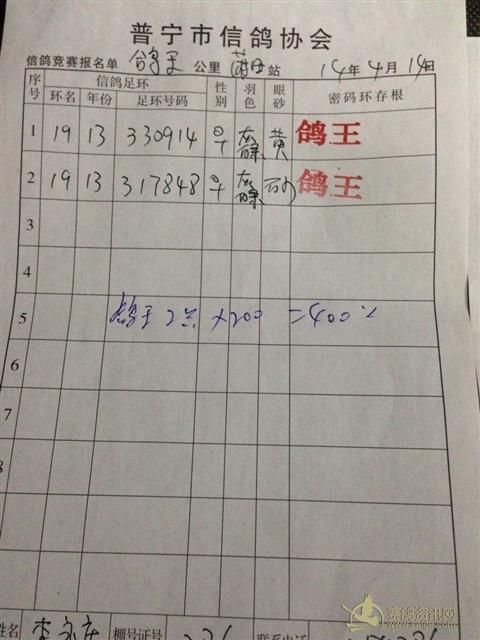 普宁市信鸽协会
信鸽竞赛报名单 鸽王 公里 莆田 站 14年4月14日
序号 信鸽足环 性别 羽色 眼砂 密码环存根
环名 年份 足环号码
1 19 13 330914 ♀ 灰 黄 鸽王
2 19 13 317848 ♀ 灰 砂 鸽王
3
4
5 鸽王2只×200=400元
6
7
8
姓名 李 棚号证号 226 联系电话
赛鸽资讯网
www.saige.com